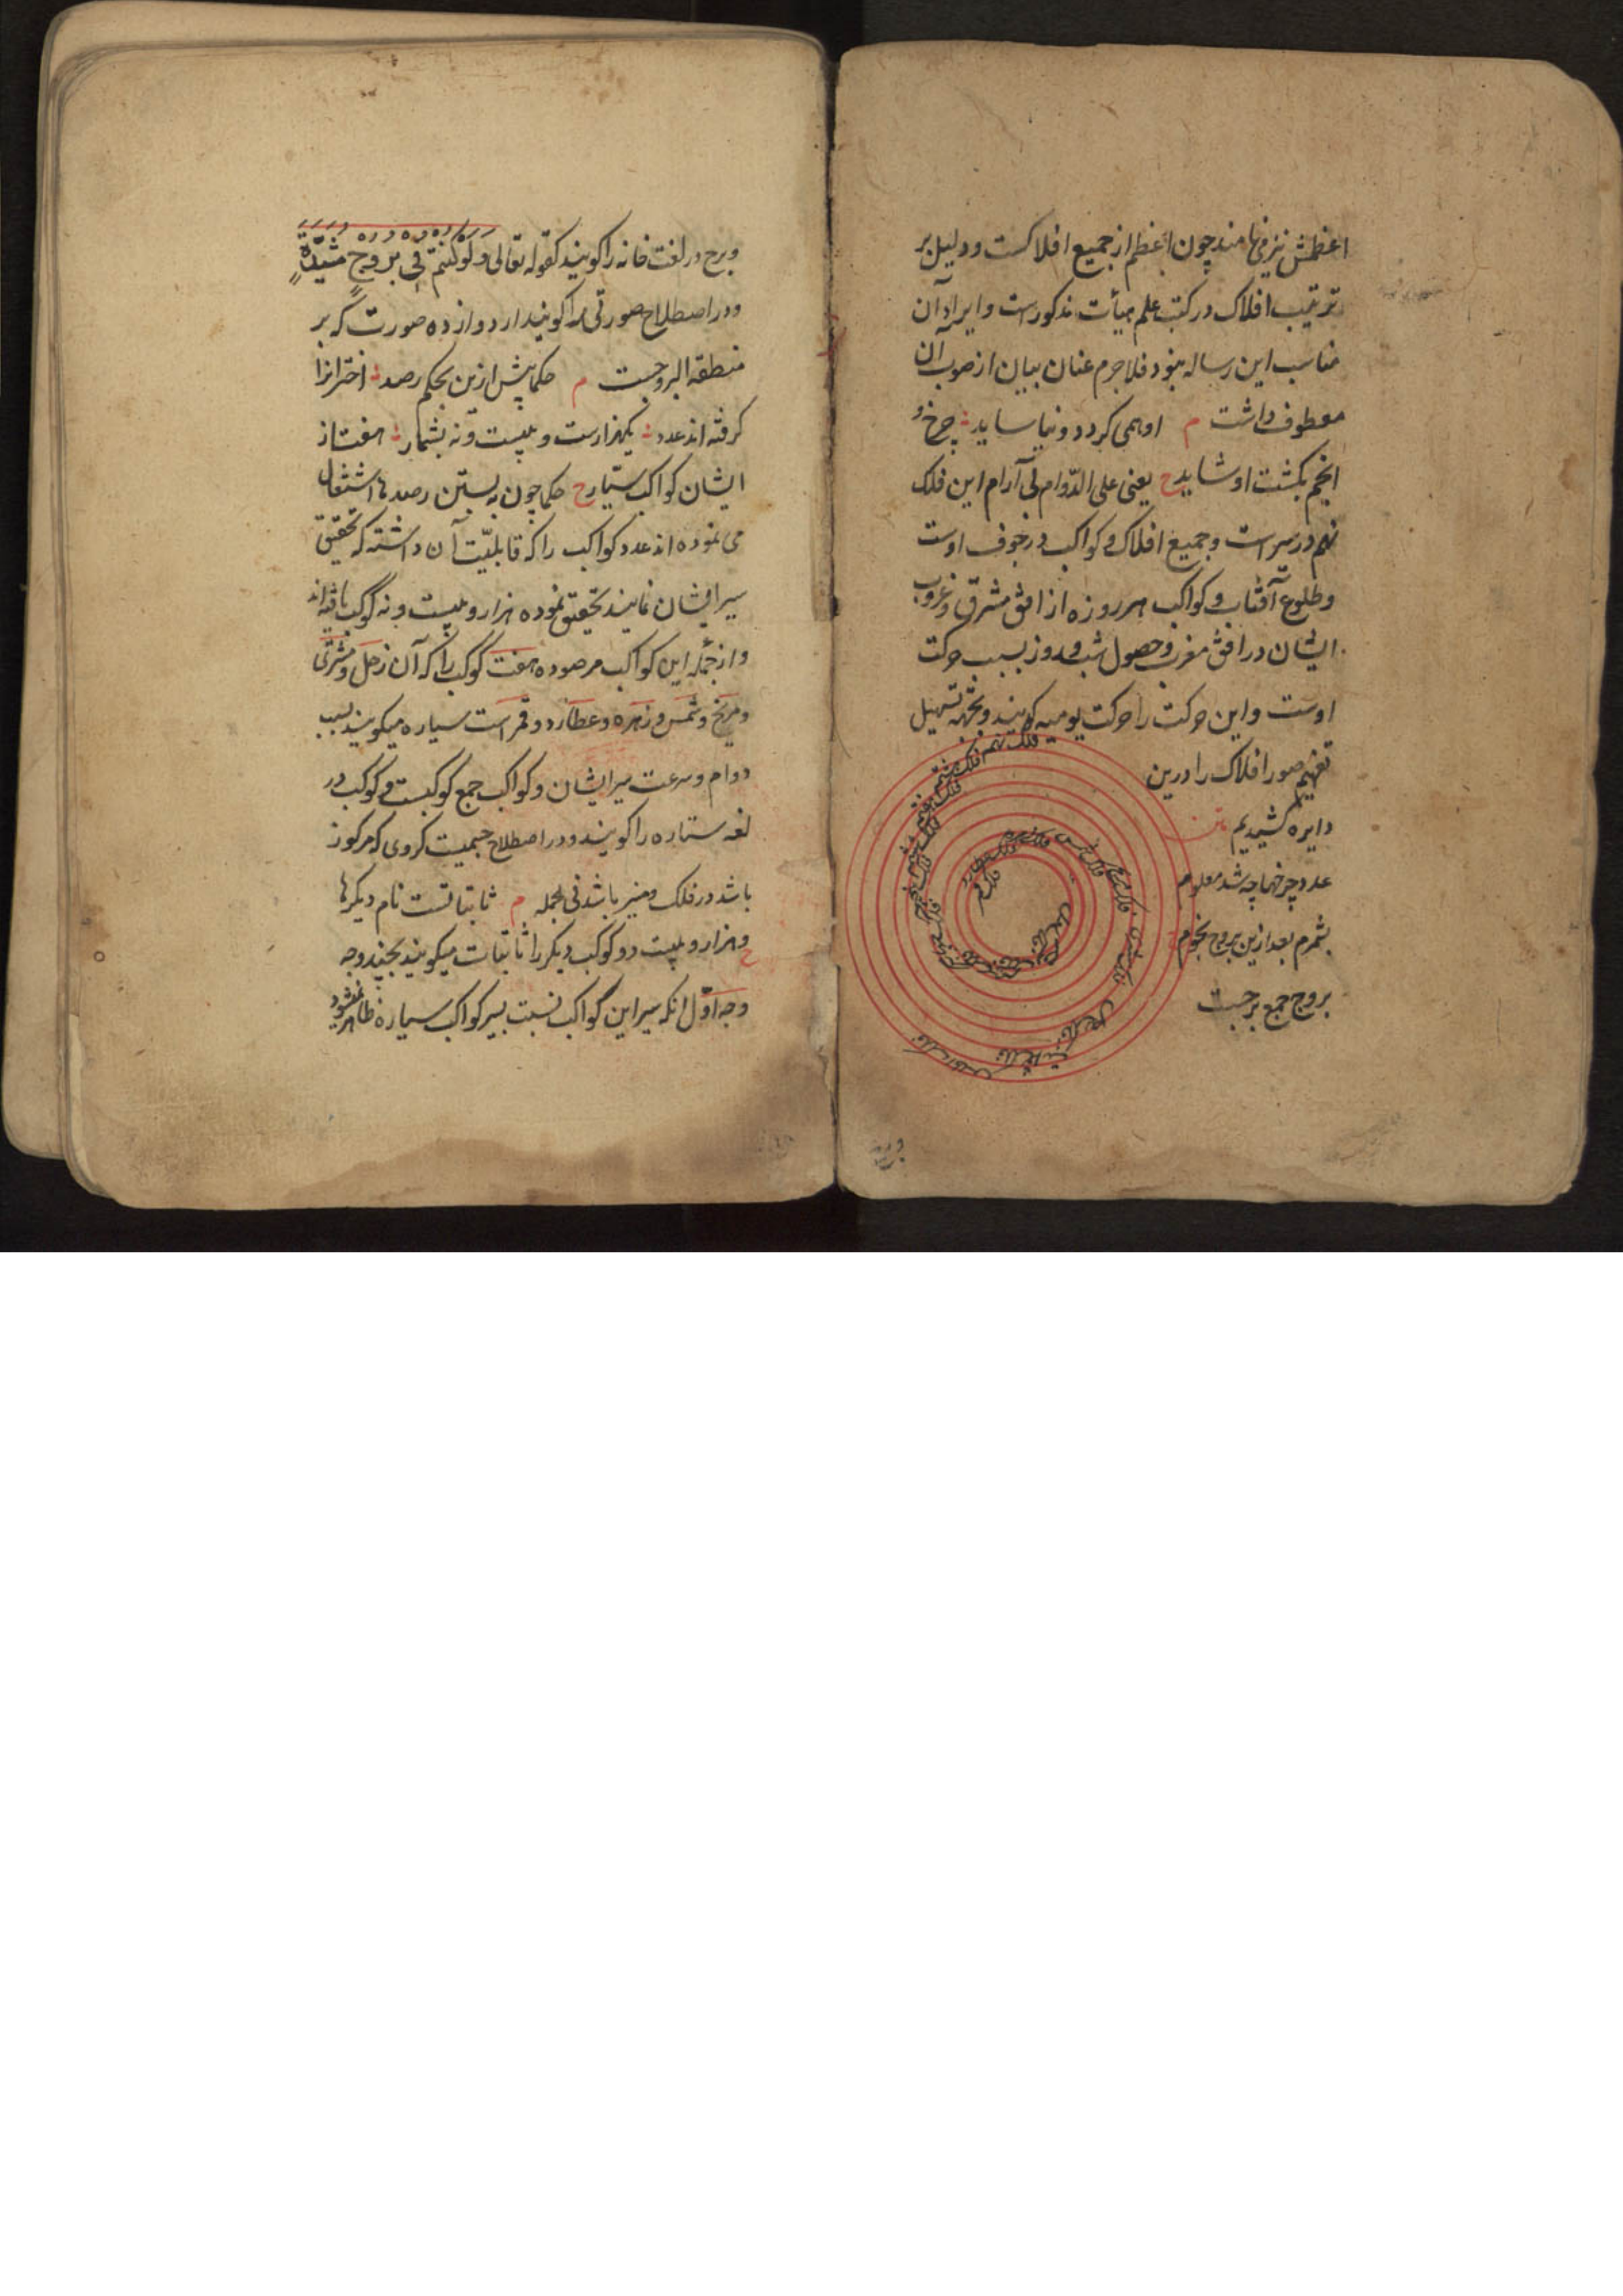 اعظمش نیز می نامند چون اعظم از جمیع افلاکست و دلیل بر
ترتیب افلاک در کتب علم هیأت مذکورست و ایراد آن
مناسب این رساله نبود فلاجرم عنان بیان از صوب آن
معطوف داشت م او همی کردد و نیاساید چرخ و
انجم بکشت او شاید ح یعنی علی الدّوام بی آرام این فلک
نهم در سیر است و جمیع افلاک و کواکب در جوف اوست
و طلوع آفتاب و کواکب هر روزه از افق مشرق و غروب
ایشان در افق مغرب و حصول شب و روز بسبب حرکت
اوست و این حرکت را حرکت یومیه کویند و بجهة تسهیل
تفهیم صور افلاک را درین
دایره کشیدیم متن
عدد چرخها چه شد معلوم
بشمرم بعد ازین بروج نجوم ح
بروج جمع برجست
فلک نهم
فلک هشتم
فلک هفتم
فلک ششم
فلک پنجم
فلک قمر
وبرج
وبرج در لغت خانه را کویند کقوله تعالی وَلَوْ کُنْتُمْ فِی بُرُوجٍ مُشَیَّدَةٍ
و در اصطلاح صورتی را کویند از دوازده صورت که بر
منطقة البروجست م حکما پیش ازین بحکم رصد اخترانرا
کرفته اند عدد یکهزارست و بیست و نه بشمار هفت از
ایشان کواکب سیّار ح حکما چون ببستن رصدها اشتغال
می نموده اند عدد کواکب را که قابلیّت آن داشته که تحقیق
سیر ایشان نمایند تحقیق نموده هزار و بیست و نه کوکب یافته اند
و از جمله این کواکب مرصوده هفت کوکب را که آن زحل و مشتری
و مریخ و شمس و زهره و عطارد و قمر است سیاره میکویند بسبب
دوام و سرعت سیر ایشان و کواکب جمع کوکبست و کوکب در
لغه ستاره را کویند و در اصطلاح جسمیست کروی که مرکوز
باشد در فلک و منیر باشد فی الجمله م ثابتاتست نام دیکرها
ح وهزار و بیست دو کوکب دیکر را ثابتات میکویند بچند وجه
وجه اوّل انکه سیر این کواکب نسبت بسیر کواکب سیاره ظاهر نمیشود